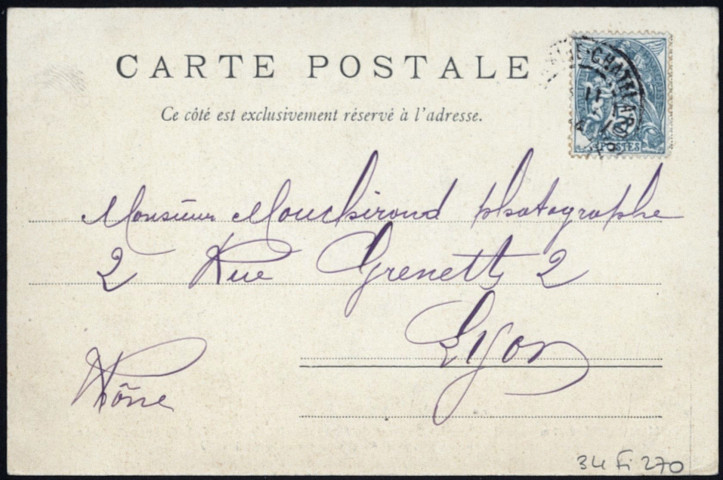 CARTE POSTALE
Ce côté est exclusivement réservé à l'adresse.
POSTES
Monsieur photographe
2 Rue Grenette 2
Lyon
Rhône
34 Fi 270